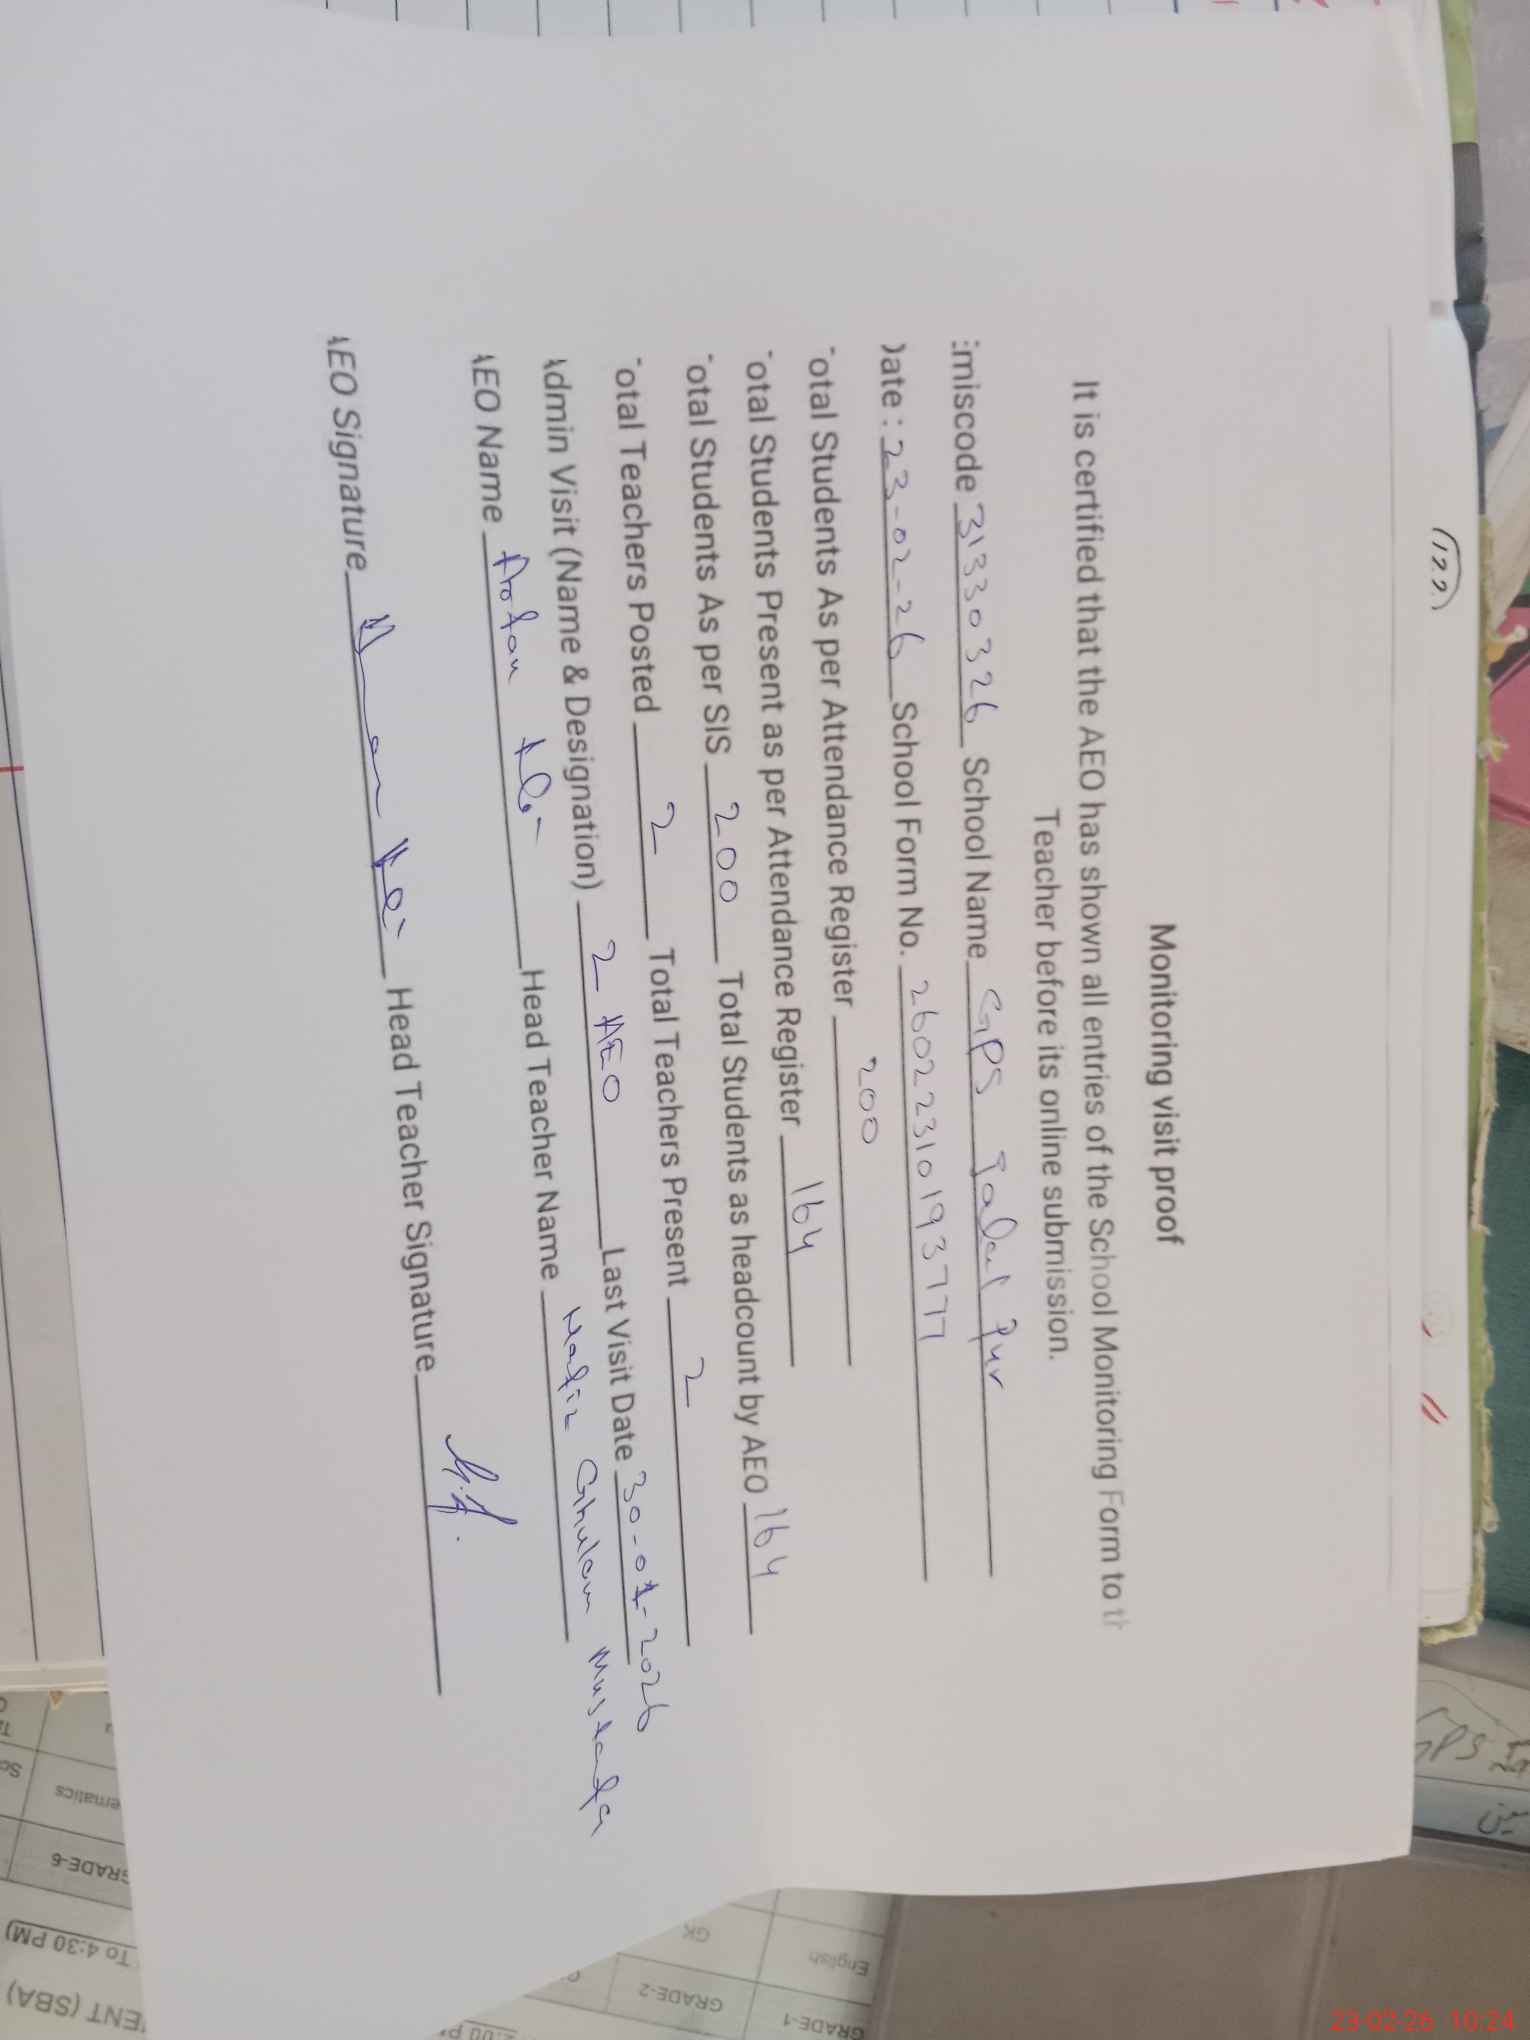 (122)
Monitoring visit proof
It is certified that the AEO has shown all entries of the School Monitoring Form to th
Teacher before its online submission.
Emiscode 31330326 School Name GPS Talal Pur
Date : 23-02-26 School Form No. 260223101937 77
Total Students As per Attendance Register 200
Total Students Present as per Attendance Register 164
Total Students As per SIS 200 Total Students as headcount by AEO 164
Total Teachers Posted 2 Total Teachers Present 2
Admin Visit (Name & Designation) 2 AEO Last Visit Date 30-01-2026
AEO Name Ali Head Teacher Name Hafiz Ghulam Mustafa
AEO Signature Head Teacher Signature
GPS
ematics
GRADE-6
To 4:30 PM)
ENT (SBA)
GK
English
GRADE-2
GRADE-1
23-02-26 10:24